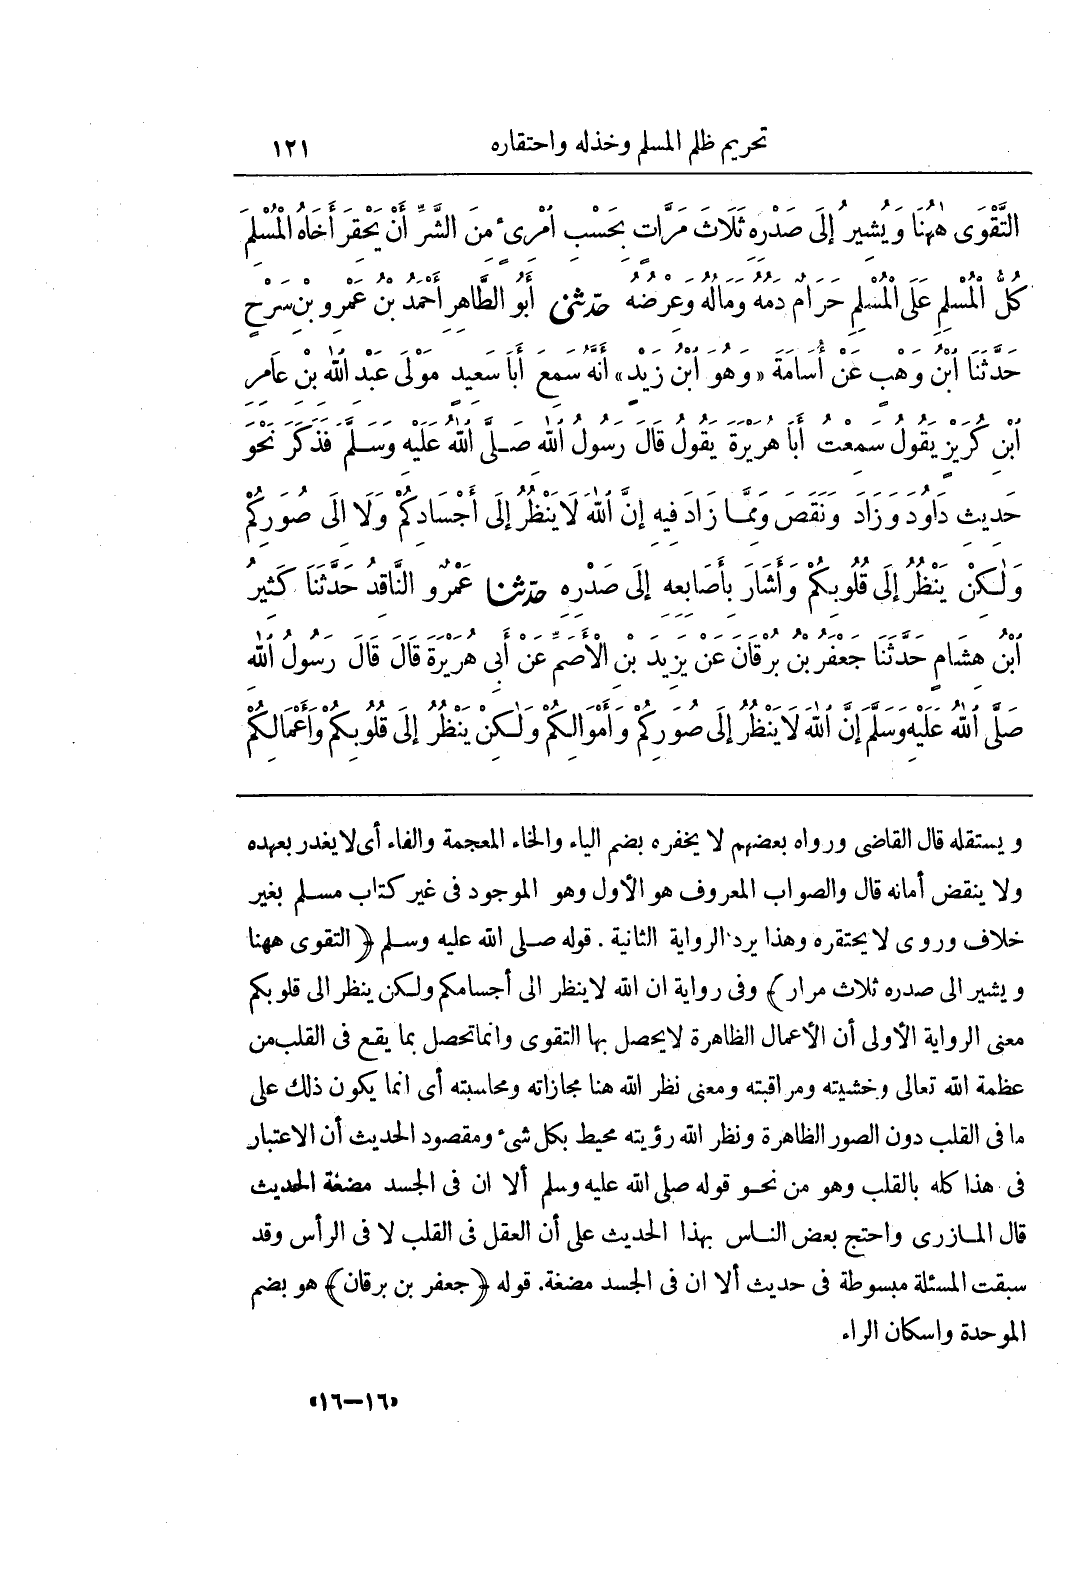 تحريم ظلم المسلم وخذله واحتقاره ١٢١
التَّقْوَى هٰهُنَا وَيُشِيرُ إِلَى صَدْرِهِ ثَلَاثَ مَرَّاتٍ بِحَسْبِ اُمْرِىءٍ مِنَ الشَّرِّ أَنْ يَحْقِرَ أَخَاهُ الْمُسْلِمَ
كُلُّ الْمُسْلِمِ عَلَى الْمُسْلِمِ حَرَامٌ دَمُهُ وَمَالُهُ وَعِرْضُهُ حَدَّثَنِي أَبُو الطَّاهِرِ أَحْمَدُ بْنُ عَمْرِو بْنِ سَرْحٍ
حَدَّثَنَا ابْنُ وَهْبٍ عَنْ أُسَامَةَ «وَهُوَ ابْنُ زَيْدٍ» أَنَّهُ سَمِعَ أَبَا سَعِيدٍ مَوْلَى عَبْدِ اللهِ بْنِ عَامِرِ
ابْنِ كُرَيْزٍ يَقُولُ سَمِعْتُ أَبَا هُرَيْرَةَ يَقُولُ قَالَ رَسُولُ اللهِ صَلَّى اللهُ عَلَيْهِ وَسَلَّمَ فَذَكَرَ نَحْوَ
حَدِيثِ دَاوُدَ وَزَادَ وَنَقَصَ وَمِمَّا زَادَ فِيهِ إِنَّ اللهَ لَا يَنْظُرُ إِلَى أَجْسَادِكُمْ وَلَا إِلَى صُوَرِكُمْ
وَلٰكِنْ يَنْظُرُ إِلَى قُلُوبِكُمْ وَأَشَارَ بِأَصَابِعِهِ إِلَى صَدْرِهِ حَدَّثَنَا عَمْرٌو النَّاقِدُ حَدَّثَنَا كَثِيرُ
ابْنُ هِشَامٍ حَدَّثَنَا جَعْفَرُ بْنُ بُرْقَانَ عَنْ يَزِيدَ بْنِ الْأَصَمِّ عَنْ أَبِي هُرَيْرَةَ قَالَ قَالَ رَسُولُ اللهِ
صَلَّى اللهُ عَلَيْهِ وَسَلَّمَ إِنَّ اللهَ لَا يَنْظُرُ إِلَى صُوَرِكُمْ وَأَمْوَالِكُمْ وَلٰكِنْ يَنْظُرُ إِلَى قُلُوبِكُمْ وَأَعْمَالِكُمْ
ويستقله قال القاضى ورواه بعضهم لا يخفره بضم الياء والخاء المعجمة والفاء أى لا يغدر بعهده
ولا ينقض أمانه قال والصواب المعروف هو الأول وهو الموجود فى غير كتاب مسلم بغير
خلاف وروى لا يحتقره وهذا يرد الرواية الثانية . قوله صلى الله عليه وسلم ﴿ التقوى ههنا
ويشير الى صدره ثلاث مرار ﴾ وفى رواية ان الله لا ينظر الى أجسامكم ولكن ينظر الى قلوبكم
معنى الرواية الأولى أن الأعمال الظاهرة لا يحصل بها التقوى وانما تحصل بما يقع فى القلب من
عظمة الله تعالى وخشيته ومراقبته ومعنى نظر الله هنا مجازاته ومحاسبته أى انما يكون ذلك على
ما فى القلب دون الصور الظاهرة ونظر الله رؤيته محيط بكل شىء ومقصود الحديث أن الاعتبار
فى هذا كله بالقلب وهو من نحو قوله صلى الله عليه وسلم ألا ان فى الجسد مضغة الحديث
قال المازرى واحتج بعض الناس بهذا الحديث على أن العقل فى القلب لا فى الرأس وقد
سبقت المسئلة مبسوطة فى حديث ألا ان فى الجسد مضغة. قوله ﴿ جعفر بن برقان ﴾ هو بضم
الموحدة واسكان الراء
«١٦–١٦»